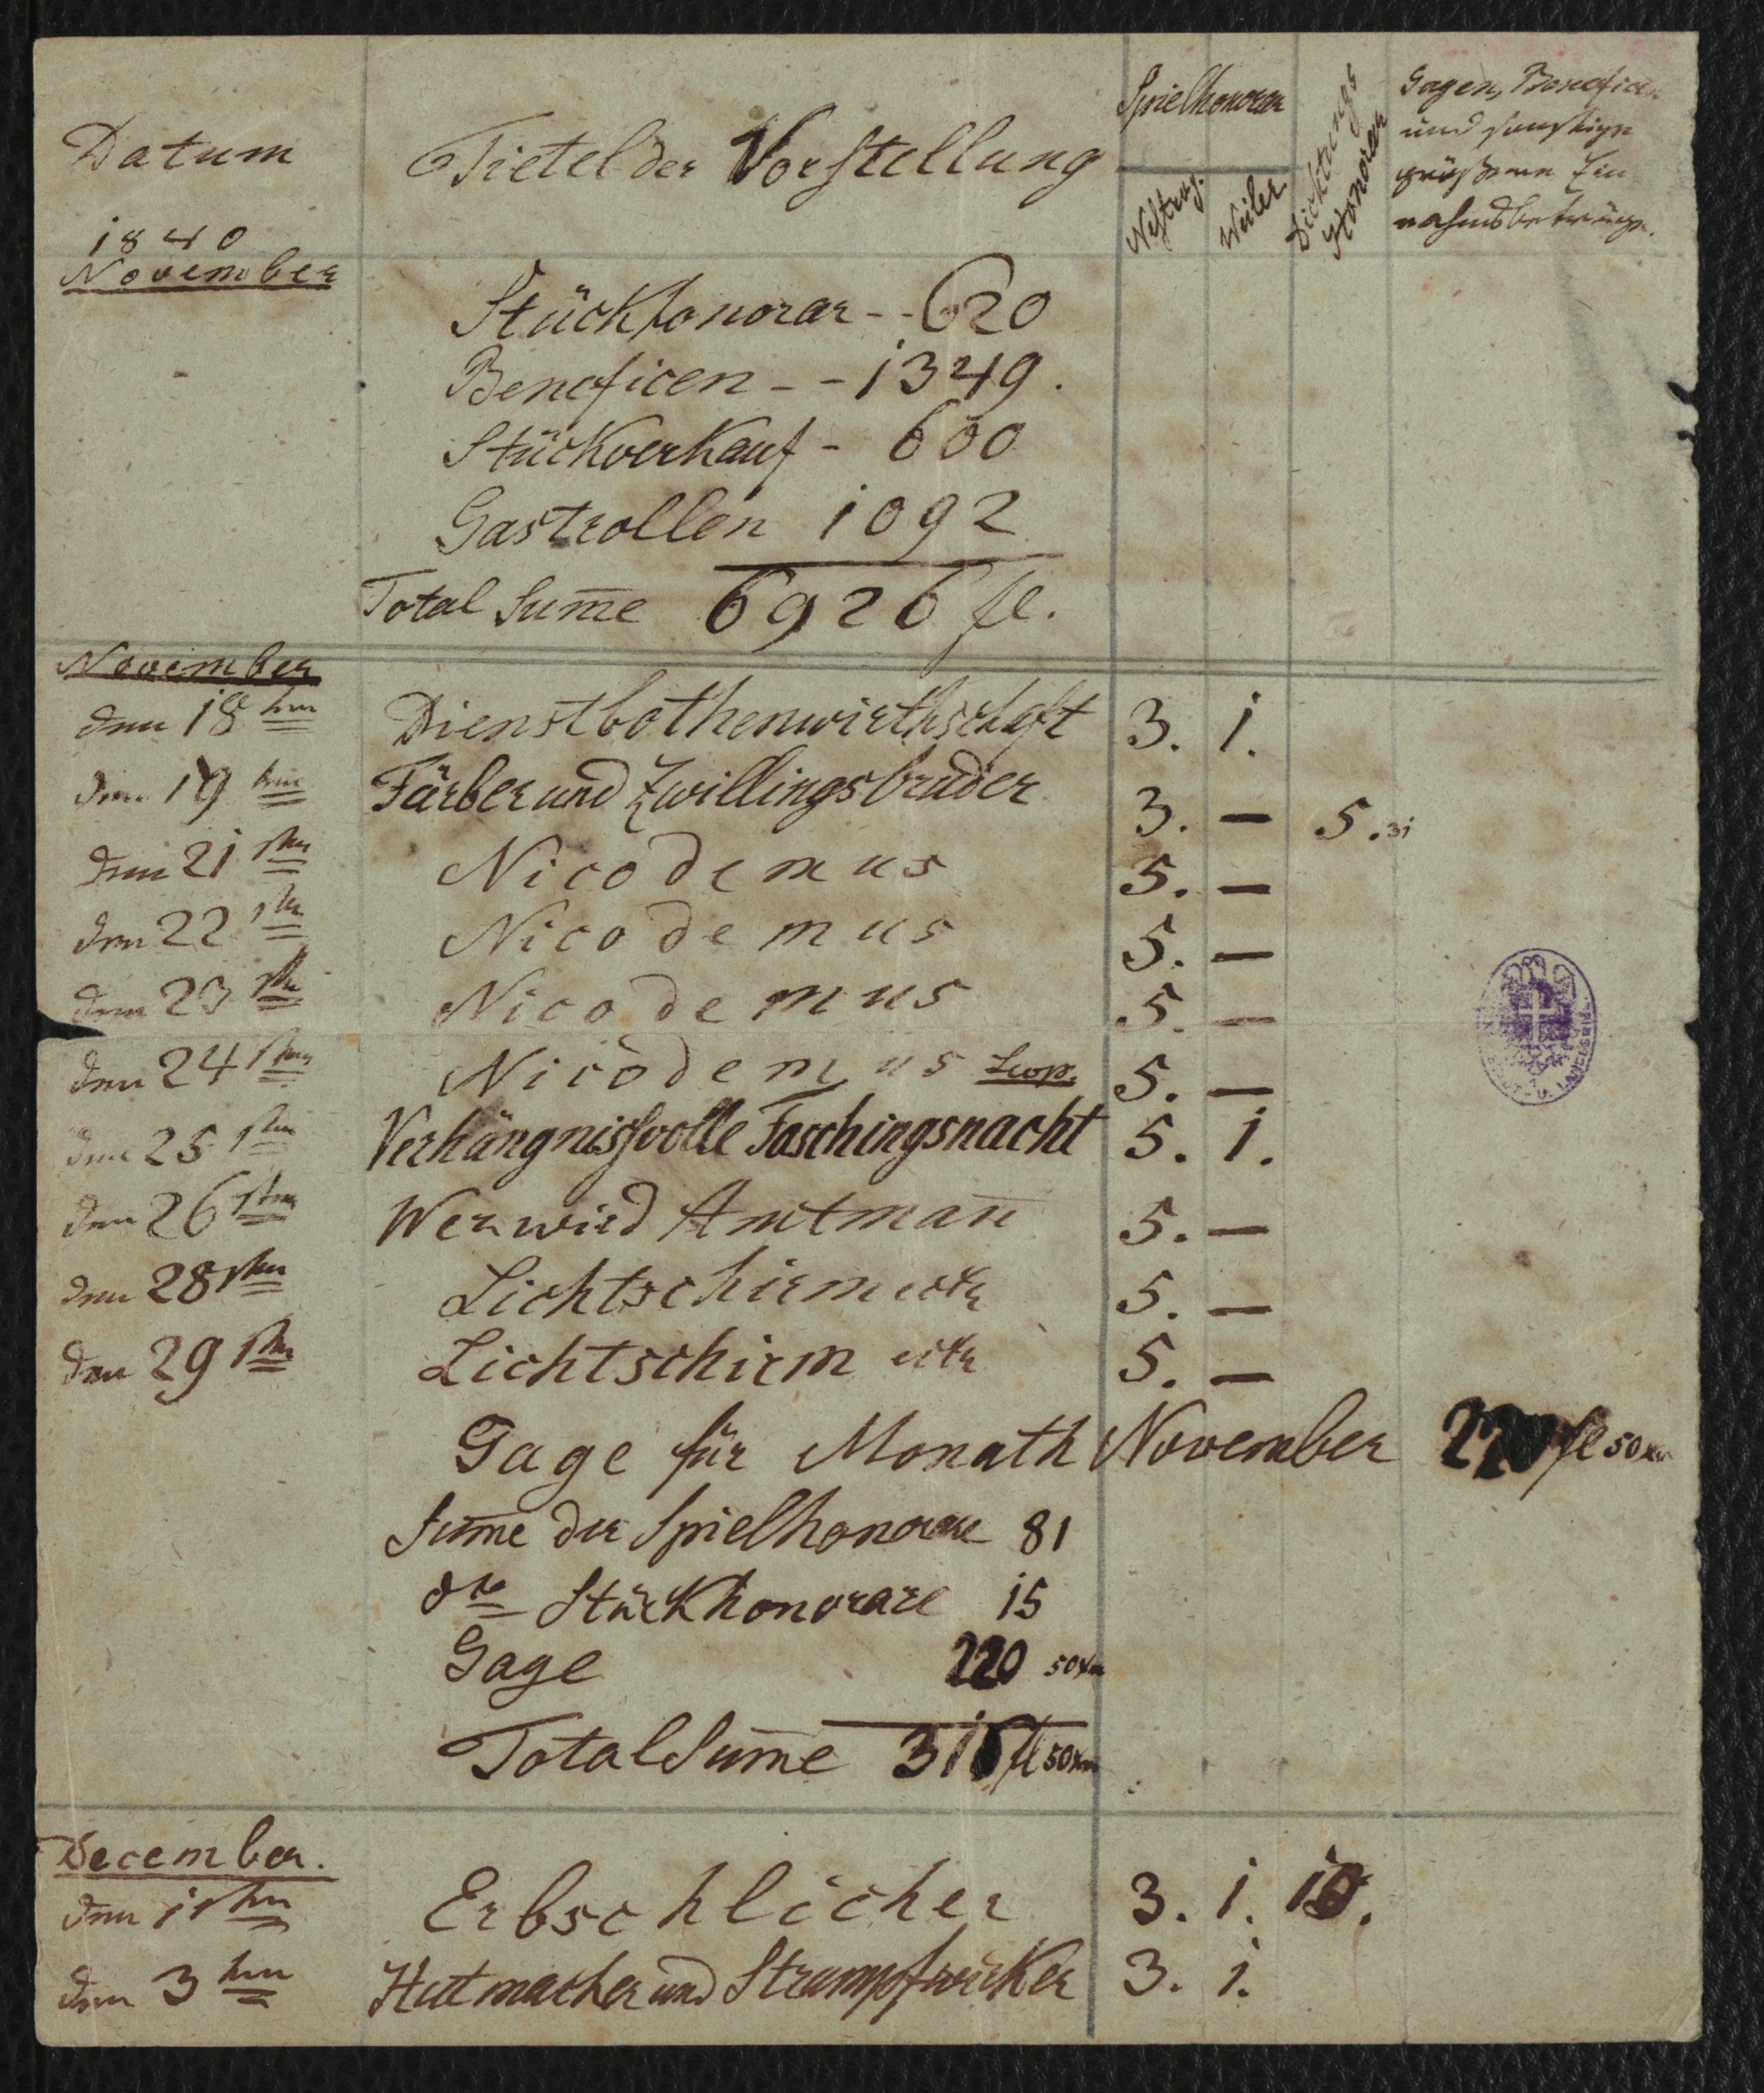 Datum
Tietel der Vorstellung
Spielhonorar
Nestroy.
Weiler.
Dichtungs
Honorar
Gagen, Beneficen
und sonstige
größere Ein
nahmsbeträge.
1840
November
Stückhonorar - - 620
Beneficen - - 1349.
Stückverkauf - 600
Gastrollen 1092
Total Sum̅e 6926 fl.
November
den 18ten Dienstbothenwirthschaft 3. 1.
den 19ten Färber und Zwillingsbruder 3. — 5.
den 21sten Nicodemus 5. —
den 22sten Nicodemus 5. —
den 23sten Nicodemus 5. —
den 24sten Nicodemus 5. —
den 25sten Verhängnißvolle Faschingsnacht 5. 1.
den 26sten Wer wird Amtman̅ 5. —
den 28sten Lichtschirm etc 5. —
den 29sten Lichtschirm etc 5. —
Gage für Monath November 220 fl 50 xr
Sum̅e der Spielhonorare 81
dto Stückhonorare 15
Gage 220 50 xr
Total Sum̅e 316 fl 50 xr
December.
den 1sten Erbschleicher 3. 1. 10.
den 3ten Hutmacher und Strumpfwirker 3. 1.